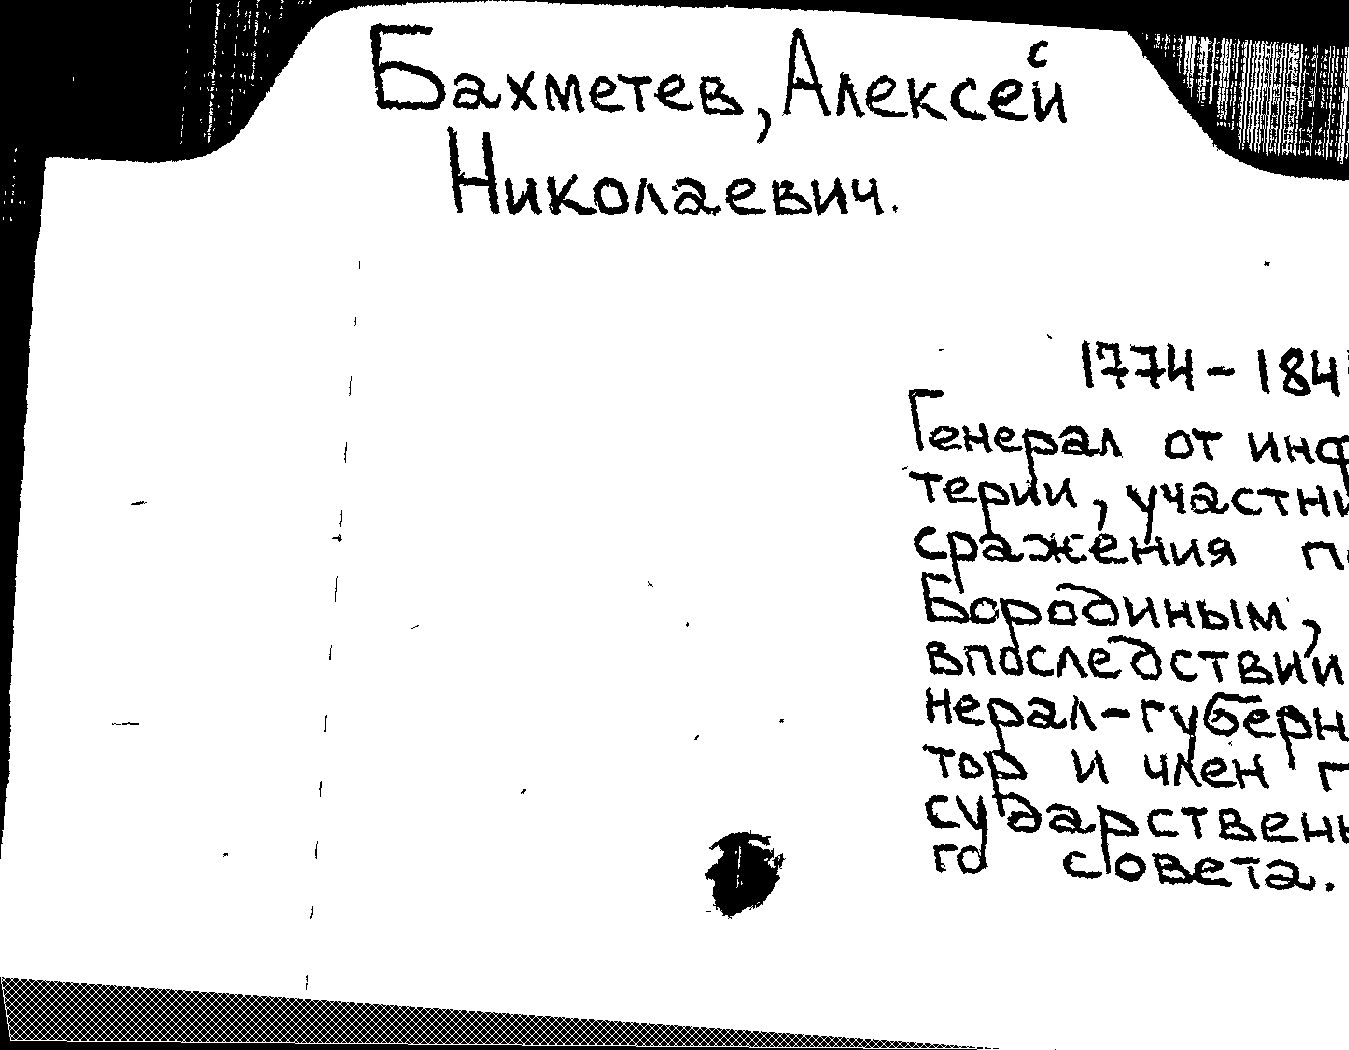 Бахметев, Алексей
Николаевич.
1774-184
Генерал от инф
терии, участни
сражения п
Бородиным,
впоследствии
нерал-губерн
тор и член г
сударственн
го совета.